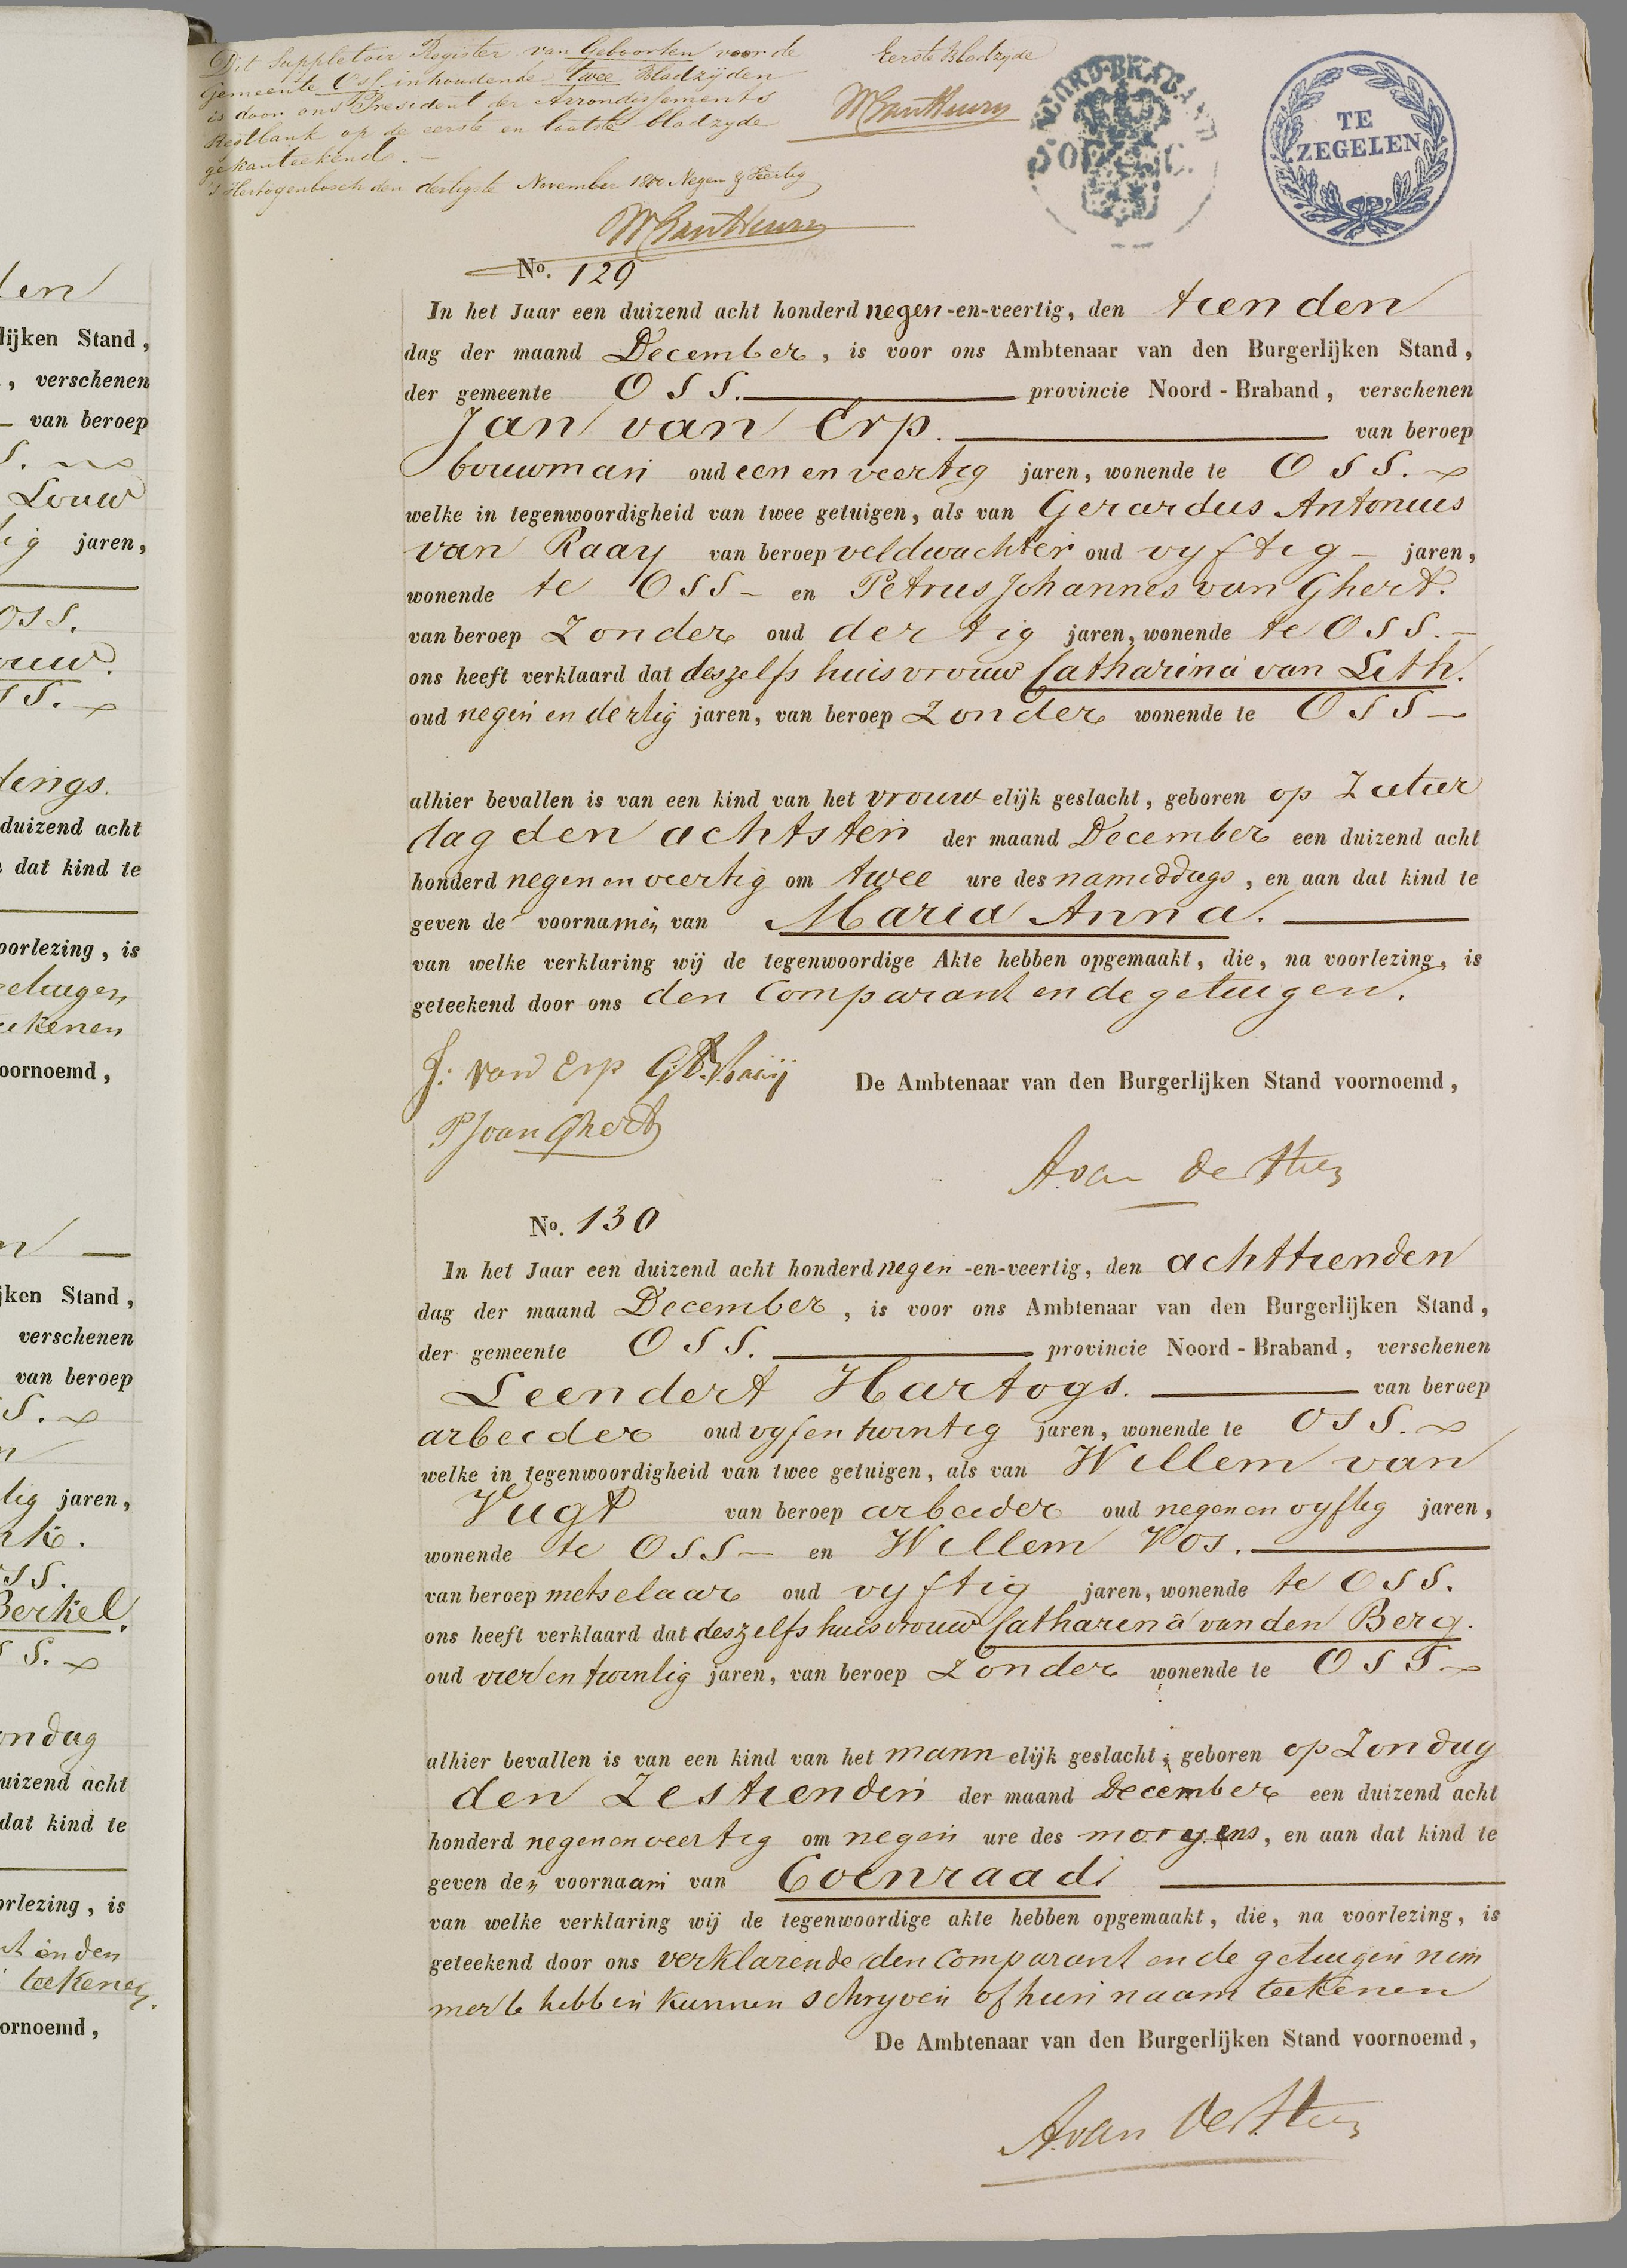 Dit Suppletoir Register van Geboorten voor de
Gemeente Oss. inhoudende twee Bladzijden
is door ons President der Arrondissements
Restbank op de eerste en laatste bladzyde
gekanteekend. —
's Hertogenbosch den dertigste November 1800 Negen & Veertig
Eerste Bladzyde
NOORD-BRABAND
TE
ZEGELEN
No. 129
In het Jaar een duizend acht honderd negen-en-veertig, den tienden
dag der maand December, is voor ons Ambtenaar van den Burgerlijken Stand,
der gemeente Oss. provincie Noord-Braband, verschenen
Jan van Erp. van beroep
bouwman oud een en veertig jaren, wonende te Oss.
welke in tegenwoordigheid van twee getuigen, als van Gerardus Antonius
van Raay van beroep veldwachter oud vyftig — jaren,
wonende te Oss — en Petrus Johannes van Ghert.
van beroep Zonder oud dertig jaren, wonende te Oss. —
ons heeft verklaard dat deszelfs huisvrouw Catharina van Lith.
oud negen en dertig jaren, van beroep Zonder wonende te Oss —
alhier bevallen is van een kind van het vrouwelijk geslacht, geboren op Zatur
dag den achtsten der maand December een duizend acht
honderd negen en veertig om twee ure des namiddags, en aan dat kind te
geven de voornamen van Maria Anna.
van welke verklaring wij de tegenwoordige Akte hebben opgemaakt, die, na voorlezing, is
geteekend door ons den Comparant en de getuigen.
J: van Erp G A V Raaij
De Ambtenaar van den Burgerlijken Stand voornoemd,
P J van Ghert
A van de
No. 130
In het Jaar een duizend acht honderd negen-en-veertig, den achttienden
dag der maand December, is voor ons Ambtenaar van den Burgerlijken Stand,
der gemeente Oss. provincie Noord-Braband, verschenen
Leendert Hartogs. van beroep
arbeider oud vyf en twintig jaren, wonende te Oss.
welke in tegenwoordigheid van twee getuigen, als van Willem van
Vugt van beroep arbeider oud negen en vyftig jaren,
wonende te Oss — en Willem Vos.
van beroep metselaar oud vyftig jaren, wonende te Oss.
ons heeft verklaard dat deszelfs huisvrouw Catharina van den Berg.
oud vier en twintig jaren, van beroep Zonder wonende te Oss.
alhier bevallen is van een kind van het mannelijk geslacht, geboren op Zondag
den Zestienden der maand December een duizend acht
honderd negen en veertig om negen ure des morgens, en aan dat kind te
geven den voornaam van Coenraad.
van welke verklaring wij de tegenwoordige akte hebben opgemaakt, die, na voorlezing, is
geteekend door ons verklarende den Comparant en de getuigen nim
mer te hebben kunnen schryven of hun naam teekenen
De Ambtenaar van den Burgerlijken Stand voornoemd,
A van de
lijken Stand,
, verschenen
van beroep
Louw
jaren,
Oss.
duizend acht
dat kind te
voorlezing, is
getuigen
voornoemd,
ijken Stand,
verschenen
van beroep
tig jaren,
Berkel.
ondag
uizend acht
dat kind te
orlezing, is
teekenen.
ornoemd,